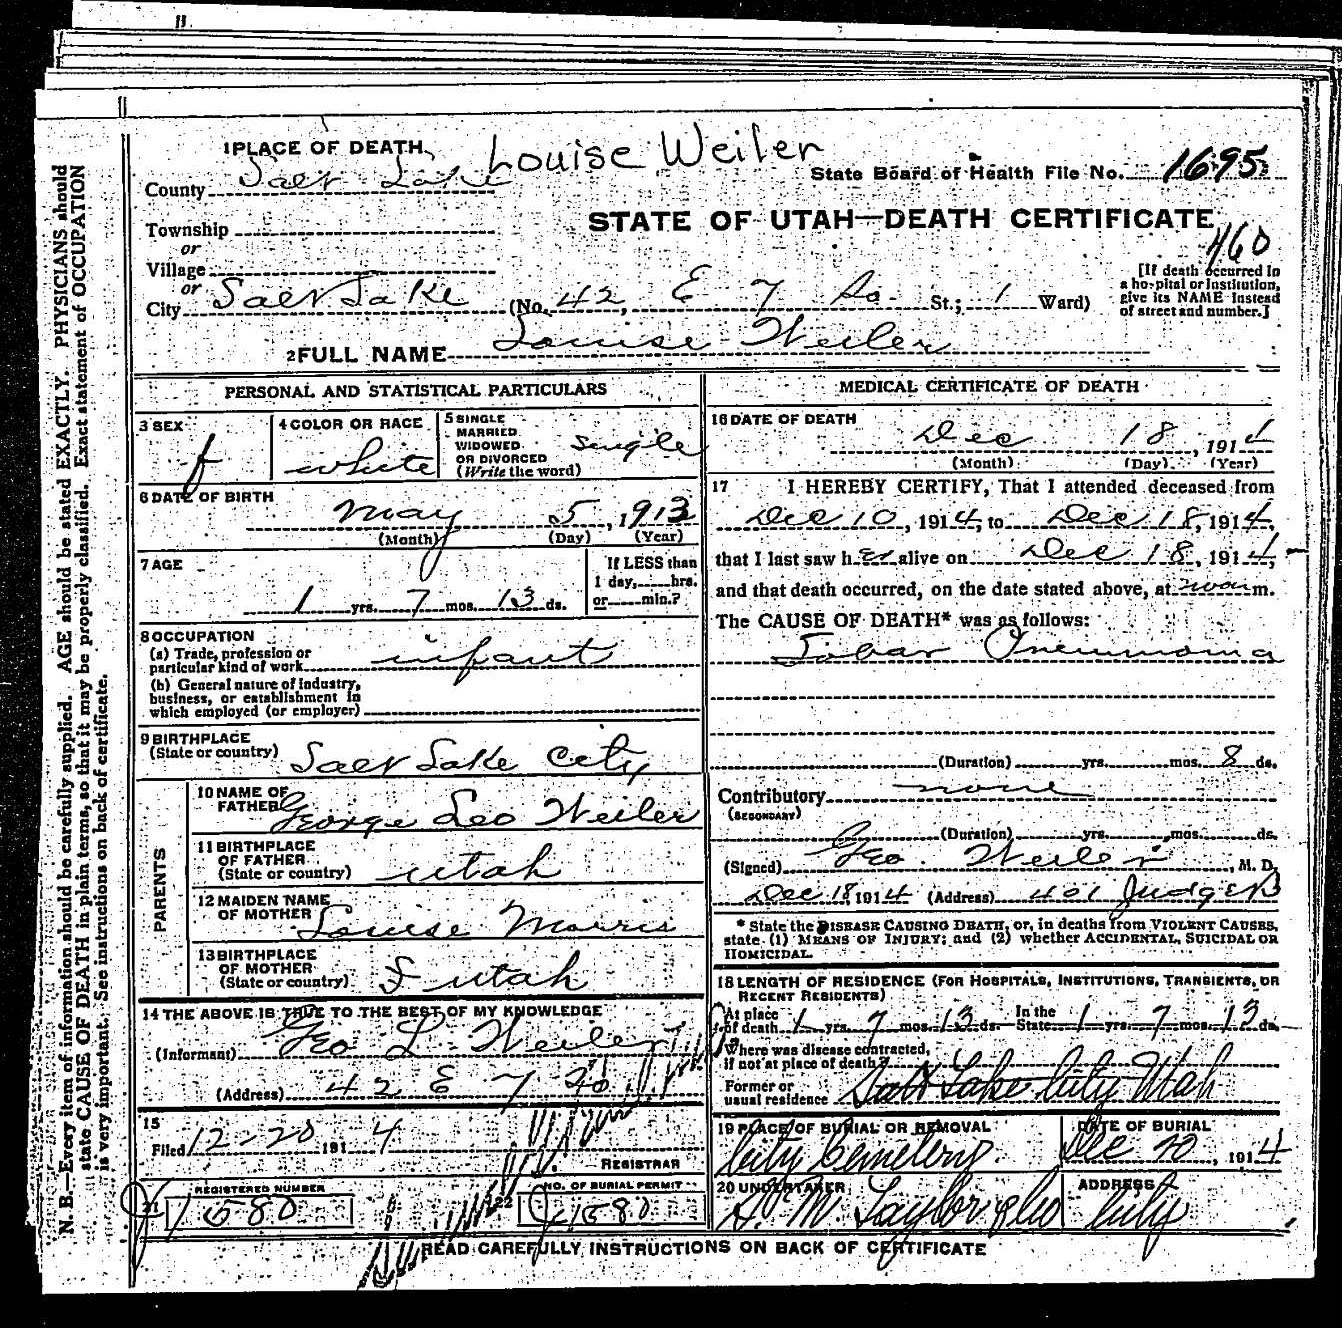 1 PLACE OF DEATH. Louise Weiler
County Salt Lake
State Board of Health File No. 1695
Township
STATE OF UTAH—DEATH CERTIFICATE
460
or
Village
or
City Salt Lake (No. 42, E 7 So. St.; 1 Ward)
[If death occurred in a hospital or institution, give its NAME instead of street and number.]
2 FULL NAME Louise Weiler
PERSONAL AND STATISTICAL PARTICULARS
3 SEX f
4 COLOR OR RACE white
5 SINGLE MARRIED WIDOWED OR DIVORCED (Write the word) single
6 DATE OF BIRTH
May 5, 1913
(Month) (Day) (Year)
7 AGE
1 yrs. 7 mos. 13 ds.
If LESS than
1 day, hrs.
or min.?
8 OCCUPATION
(a) Trade, profession or
particular kind of work infant
(b) General nature of industry,
business, or establishment in
which employed (or employer)
9 BIRTHPLACE
(State or country) Salt Lake City
PARENTS
10 NAME OF
FATHER George Leo Weiler
11 BIRTHPLACE
OF FATHER
(State or country) Utah
12 MAIDEN NAME
OF MOTHER Louise Morris
13 BIRTHPLACE
OF MOTHER
(State or country) Utah
14 THE ABOVE IS TRUE TO THE BEST OF MY KNOWLEDGE
(Informant) Geo L. Weiler
(Address) 42 E 7 So
15
Filed 12-20 1914
REGISTRAR
REGISTERED NUMBER
21 1680
NO. OF BURIAL PERMIT
22 1680
MEDICAL CERTIFICATE OF DEATH
16 DATE OF DEATH
Dec 18, 1914
(Month) (Day) (Year)
17 I HEREBY CERTIFY, That I attended deceased from
Dec 10, 1914, to Dec 18, 1914,
that I last saw her alive on Dec 18, 1914,
and that death occurred, on the date stated above, at m.
The CAUSE OF DEATH* was as follows:
Lobar Pneumonia
(Duration) yrs. mos. 8 ds.
Contributory none
(SECONDARY)
(Duration) yrs. mos. ds.
(Signed) Geo. Weiler, M. D.
Dec 18 1914 (Address) 401 Judge B
* State the DISEASE CAUSING DEATH, or, in deaths from VIOLENT CAUSES,
state (1) MEANS OF INJURY; and (2) whether ACCIDENTAL, SUICIDAL OR
HOMICIDAL.
18 LENGTH OF RESIDENCE (FOR HOSPITALS, INSTITUTIONS, TRANSIENTS, OR
RECENT RESIDENTS)
At place of death 1 yrs. 7 mos. 13 ds. In the State 1 yrs. 7 mos. 13 ds.
Where was disease contracted,
if not at place of death?
Former or
usual residence Salt Lake City Utah
19 PLACE OF BURIAL OR REMOVAL
City Cemetery
DATE OF BURIAL
Dec 20, 1914
20 UNDERTAKER
S. M. Taylor & Co
ADDRESS
City
READ CAREFULLY INSTRUCTIONS ON BACK OF CERTIFICATE
N. B.—Every item of information should be carefully supplied. AGE should be stated EXACTLY. PHYSICIANS should
state CAUSE OF DEATH in plain terms, so that it may be properly classified. Exact statement of OCCUPATION
is very important. See instructions on back of certificate.